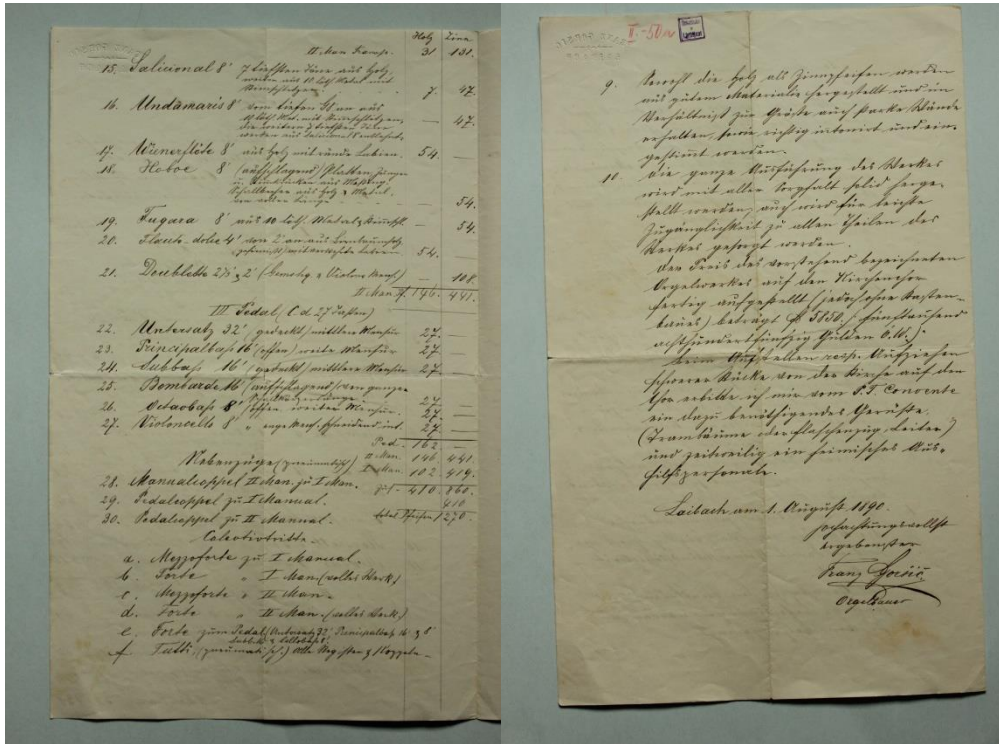 Holz Zinn
II Man Transp. 31 131.
15. Salicional 8' 7 tiefsten Töne aus Holz,
weiter aus 10 löth. Metal mit
7. 47.
16. Undamaris 8' vom tiefen G an aus
10 löth. Met. mit
— 47.
die weitern 7 tiefsten Töne
werden aus Salicional 8'
17. Wienerflöte 8' aus Holz mit runde Labien. 54. —
18. Hoboe 8' (aufschlagend) Platten, Zungen
u. aus Messing,
Schallbecher aus Holz & Metal,
— 54.
19. Fugara 8' aus 10 löth. Metal & — 54.
20. Flauto-dolce 4' von 2' an aus
mit 54. —
21. Doublette 2 2/3 & 2' — 108.
II Man Pf. 146. 441.
III Pedal (C-d. 27 Tasten)
22. Untersatz 32' gedeckt / mittlere Mensur 27. —
23. Principalbaß 16' (offen) weite Mensur 27. —
24. Subbass 16' (gedeckt) mittlere Mensur 27. —
25. Bombarde 16' (aufschlagend) von ganzer
27. —
26. Octavbaß 8' offen, weiter Mensur. 27. —
27. Violoncello 8' " enge Mens. schneidend int. 27. —
Ped. - 162 —
II Man. 146 441.
Nebenzüge (pneumatisch) I Man. 102. 419.
28. Manualcoppel II Man. zu I Man. 410. 860.
29. Pedalcoppel zu I Manual. 410
30. Pedalcoppel zu II Manual. Pfeifen 1270.
Colectivtritte.
a. Mezzoforte zu I Manual.
b. Forte " I Man. (volles Werk)
c. Mezzoforte " II Man.
d. Forte " II Man. (volles Werk.)
e. Forte zum Pedal (Untersatz 32' Principalbaß 16' & 8'
Subb. & Cellobaß 8'.
f. Tutti, (pneumatisch.) alle Register & Koppeln.
V-50a
9. Sowohl die Holz als Zinnpfeifen werden
aus gutem Materiale hergestellt und im
Verhältniß zur Größe auch starke Wände
erhalten, sowie richtig intonirt und ein-
gestimmt werden.
10. Die ganze Ausführung des Werkes
wird mit aller Sorgfalt solid herge-
stellt werden, auch wird für leichte
Zugänglichkeit zu allen Theilen des
Werkes gesorgt werden.
Der Preis des vorstehend bezeichneten
Orgelwerkes auf den Kirchenchor
fertig aufgestellt (jedoch ohne Kasten-
baues) beträgt fl 5850. / fünftausend
achthundertfünfzig Gulden Ö.W./
Beim Aufstellen resp. Aufziehen
schwerer Stücke von der Kirche auf den
Chor erbitte ich mir vom P.T. Convente
ein dazu benöthigendes Gerüste,
(Trambäume oder Flaschenzug Leiter)
und zeitweilig ein heimisches Aus-
hilfspersonale.
Laibach am 1. August 1890.
Hochachtungsvollst
ergebenster
Franz Goršič
Orgelbauer